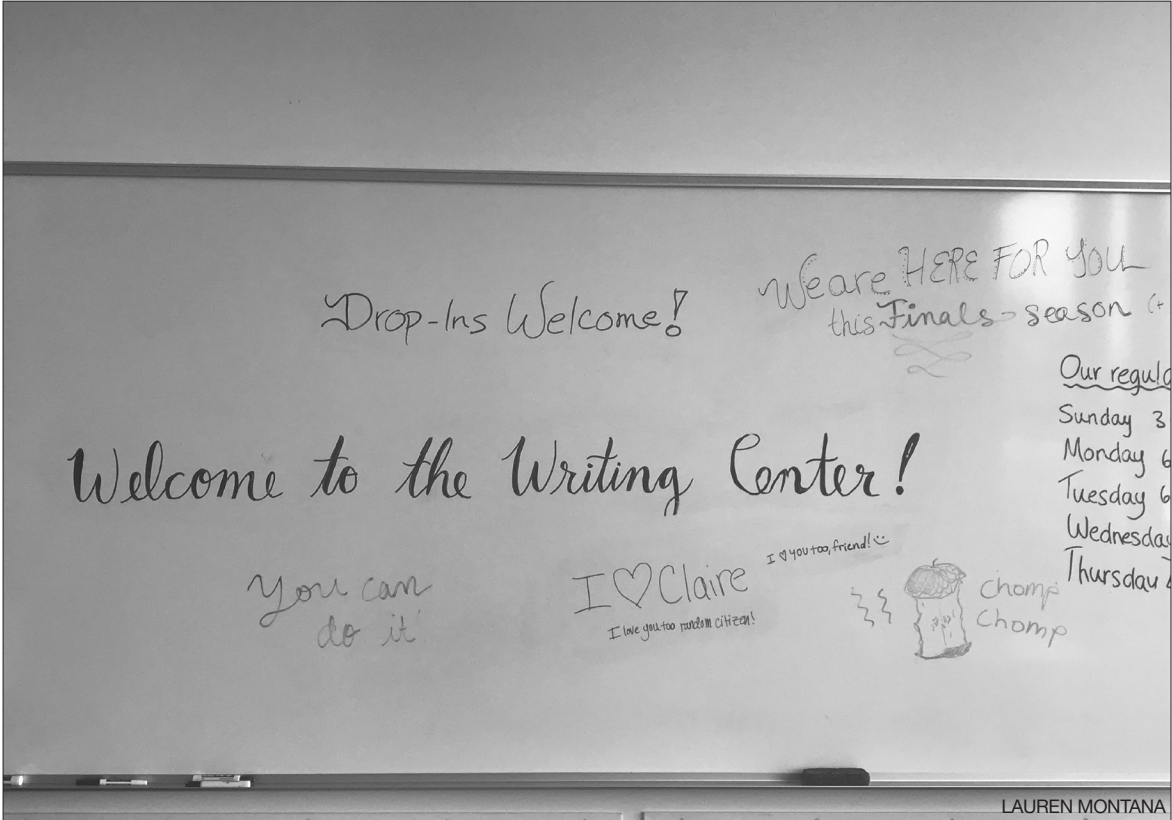 Drop-Ins Welcome!
We are HERE FOR YOU
this Finals - season (+
Our regula
Sunday 3
Monday 6
Tuesday 6
Wednesday
Thursday
Welcome to the Writing Center!
You can
do it
I ♡ Claire
I love you too random citizen!
I ♡ you too, friend!
Chomp
Chomp
LAUREN MONTANA